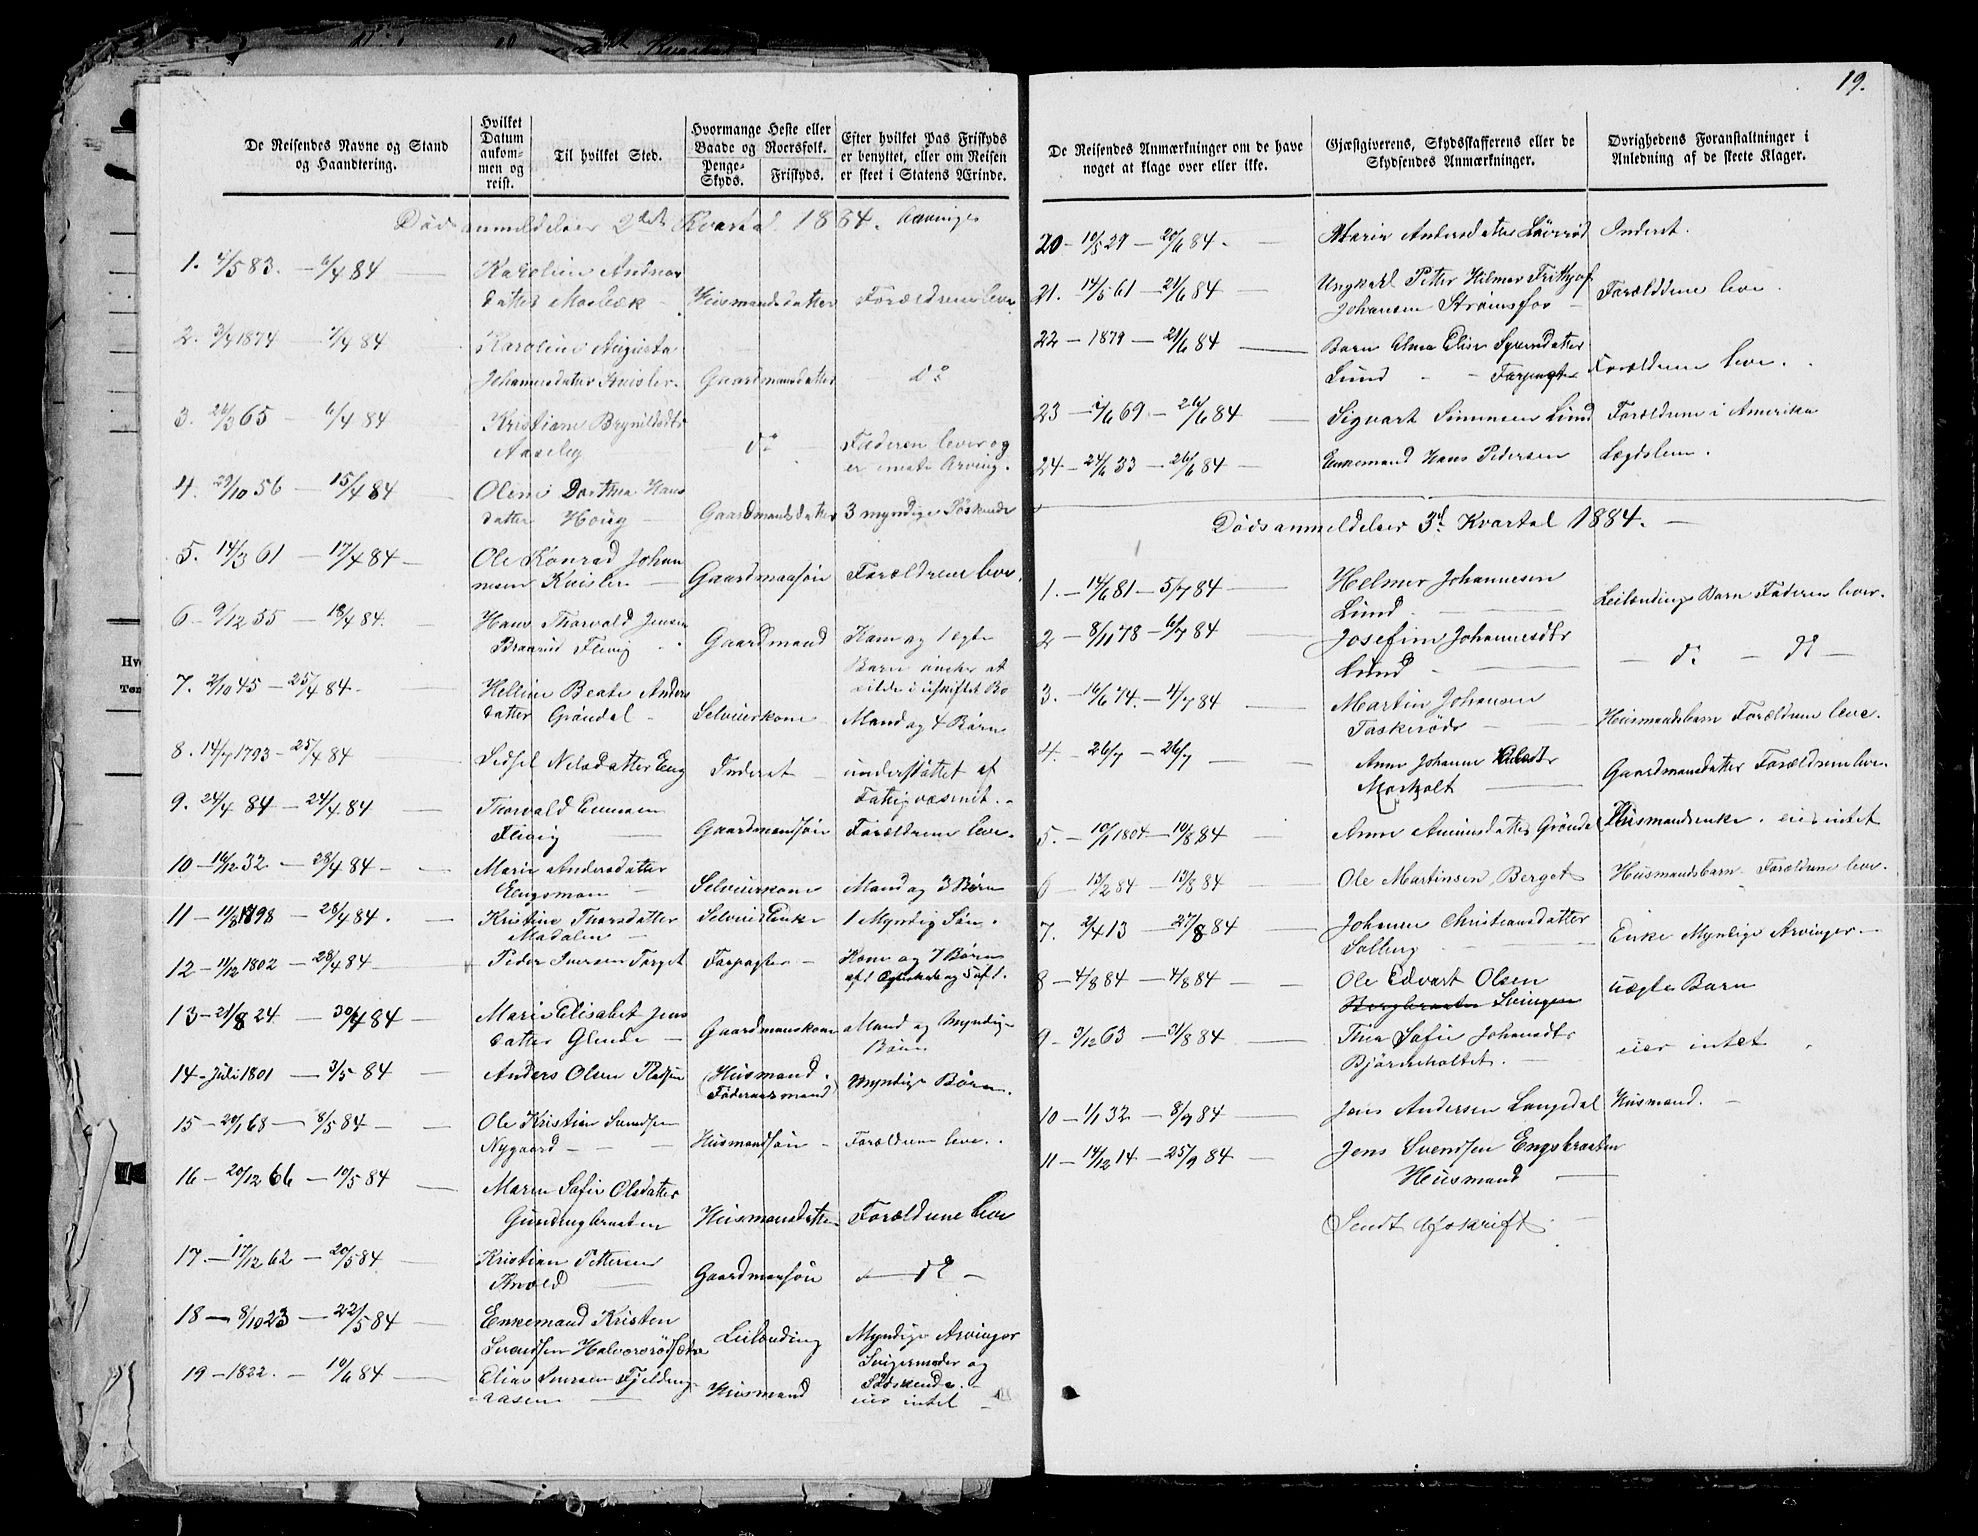 De Reisendes Navne og Stand og Haandtering.
Hvilket Datum ankommen og reist.
Til hvilket Sted.
Hvormange Heste eller Baade og Roersfolk.
Penge-Skyds.
Friskyds.
Efter hvilket Pas Friskyds er benyttet, eller om Reisen er skeet i Statens Ærinde.
Dødsanmeldelser 2det Kvartal 1884. Arvinger
1. 4/5 83. — 6/4 84 — Karoline Andrea
datter Mosbæk — Husmandsdatter Forældrene leve
2. 3/7 1874 — 7/4 84 Karoline Augusta
Johannesdatter Kvisler. Gaardmansdatter do
3. 26/3 65 — 6/4 84 — Kristiane Brynildsdtr
Aaseby — do — Faderen lever og
er eneste Arving.
4. 29/10 56 — 15/4 84 — Oleni Dorthea Hans
datter Houg — Gaardmandsdatter 3 myndige Søskende
5. 14/3 61 — 17/4 84 — Ole Konrad Johan
nesen Kvisler — Gaardmansøn Forældrene leve.
6 9/12 55 — 18/4 84. Hans Thorvald Jensen
Braarud Fleng Gaardmand Kone og 1 ægte
Barn ønsker at
sidde i uskiftet Bo
7. 2/10 45 — 25/4 84. — Helline Beate Anders
datter Grøndal — Selveierkone — Mand og 4 Børn
8. 14/7 1793 — 25/4 84 Sidsel Nilsdatter Eng Inderst — understøttet af
Fattigvæsenet. -
9. 24/4 84 — 24/4 84 — Thorvald
Gaardmandsøn Forældrene leve.
10 — 16/12 32. — 28/4 84. — Marie Andersdatter
Engsmoen — Selveierkone Mand og 3 Børn
11 — 11/3 1798 — 28/4 84. — Kristine Thorsdatter Selveier Enke 1 Myndig Søn.
Madalen —
12 — 11/12 1802 — 28/4 84 — Peder Iversen Torget Forpagter — Kone og 7 Børn
13 — 21/8 24 — 30/4 84 — Marie Elisabet Jens
datter Glende — Gaardmanskone Mand og Myndige
Børn
14 — Juli 1801 — 3/5 84 — Anders Olsen Pladsen (Husmand.
Føderaasmand) Myndige Børn.
15 — 20/1 68 — 8/5 84 — Ole Kristian Svendsen
Nygaard — Husmandsøn — Forældrene leve.
16 — 20/12 66 — 10/5 84 — Maren Sofie Olsdatter
Husmansdatter Forældrene leve
17. — 17/12 62 — 20/5 84. Kristian Pettersen
Knold — Gaardmansøn — do —
18 — 8/10 23 — 22/5 84 — Enkemand Kristen
Svendsen Leilending Myndige Arvinger
19 — 1822. — 10/6 84 — Elias Iversen Fjelding
aasen — Husmand Svigermoder og
Søskende. -
eier intet -
19.
De Reisendes Anmærkninger om de have noget at klage over eller ikke.
Gjæstgiverens, Skydsskafferens eller de Skydsendes Anmærkninger.
Øvrighedens Foranstaltninger i Anledning af de skeete Klager.
20 — 10/5 29 — 20/6 84. — Marie Andersdatter Inderst.
21. — 14/5 61 — 21/6 84 — Ungkarl Petter Hilmer Frithjof
Johansen Strømsfor — Forældrene leve.
22 — 1879 — 21/6 84 — Barn Elise
Lund — Forpagter Forældrene leve.
23 — 1/6 69 — 26/6 84 — Sigvart Simensen Lund Forældrene i Amerika
24 — 24/6 33 — 26/6 84 — Enkemand Hans Pedersen Lægdslem.
Dødsanmeldelser 3d. Kvartal 1884. —
1. — 14/6 81 — 5/7 84 — Helmer Johannesen
Lund. — Leilendings Barn Faderen lever.
2 — 8/11 78 — 6/7 84 — Josefine Johannesdtr
Lund — do — do —
3. — 16/6 74. — 4/7 84 — Martin Johansen
Taskerød — Husmandsbarn Forældrene leve.
4. — 26/7 — 26/7 — Anne Johanne
Mosholt — Gaardmansdatter Forældrene leve.
5. — 10/1 1804 — 10/8 84 — Anne Amunsdatter Grøndal Husmandsenke. eier intet
6 — 13/2 84 — 13/8 84 — Ole Martinsen Berget Husmandsbarn Forældrene leve.
7. 2/4 13 — 27/8 84 — Johanne Christiansdatter
Solberg — Enke Myndige Arvinger —
8 — 4/8 84 — 4/8 84 — Ole Edvart Olsen
Svingen uægte Barn
9 — 3/12 63 — 31/8 84 — Thea Sofie Johansdtr
Bjørneholtet. — eier intet
10 — 1/1 32 — 8/9 84 — Jens Andersen Langedal Husmand. —
11 — 14/12 14 — 25/9 84 — Jens Svendsen Engebraaten
Husmand —
Sendt Afskrift. —